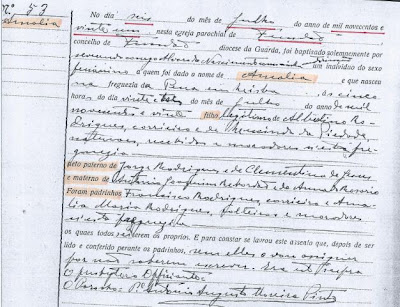 n.º 53
Amalia
No dia seis do mês de julho do ano de mil novecentos e
vinte um, nesta egreja parochial de Fundão,
concelho de Fundão, diocese da Guarda, foi baptisado solemnemente por
um individuo do sexo
feminino a quem foi dado o nome de Amalia e que nasceu
na freguezia de ás cinco
horas do dia vinte do mês de julho do ano de mil
novecentos e vinte filho legitimo de Albertino Ro-
drigues, corrieiro e de da Piedade,
recebidos e moradores nesta fre-
guezia
neto paterno de Jorge Rodrigues e de Clementina de Jesus
e materno de Antonio Joaquim e de Anna do Rosario
Foram padrinhos Francisco Rodrigues, corrieiro e Ama-
lia Maria Rodrigues, solteiros e moradores
nesta freguezia
os quaes todos sei serem os proprios. E para constar se lavrou este assento que, depois de ser
lido e conferido perante os padrinhos, sem elles o vão assignar
por não saberem escrever. Era ut supra
O presbytero Officiante:
O Parocho: P.e Antonio Augusto Moreira Pinto